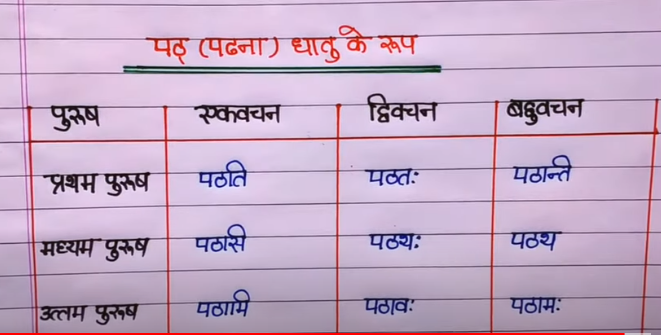 पठ् (पढना) धातु के रूप
पुरूष एकवचन द्विवचन बहुवचन
प्रथम पुरूष पठति पठतः पठन्ति
मध्यम पुरूष पठसि पठथः पठथ
उत्तम पुरूष पठामि पठावः पठामः